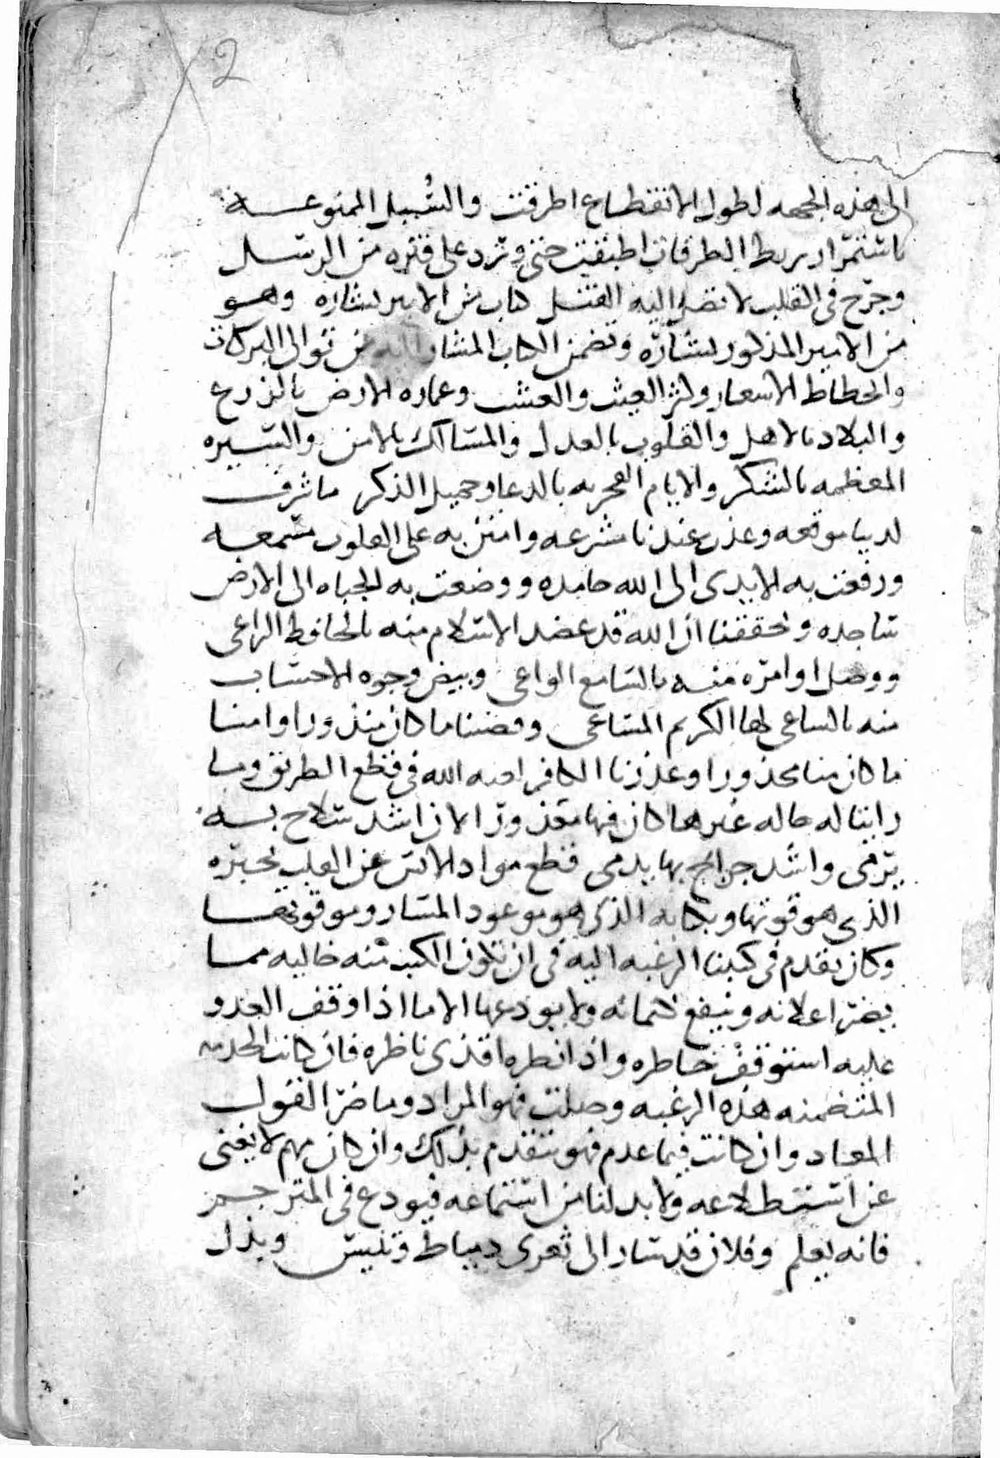 2
الى هذه الجهه لطول الانقطاع اطرقت والسُبل الممنوعـه
باستمرار بربط الطرقات اطبقت حتى وترد على فتره من الرسل
وجرح فى القلب لا تصل اليه الفتل كتاب من الامير بشاره وهو
من الامير المذكور بشاره وتضمن الكتاب المشار اليه من توالى البركات
وانحطاط الاسعار ولثر العيش والعشب وعماره الارض بالزرع
والبلاد بالاهل والقلوب بالعدل والمسالك بالامن والسيره
المعظمه بالشكر والايام بالدعا وجميل الذكر ما شرف
لدينا موقعه وعذب عندنا مشرعه وامتن به على القلوب مسمعه
ورفعت به الايدى الى الله حامده ووضعت به الجباه الى الارض
ساجده وتحققنا ان الله قد عضد الاسلام منه بالحافظ الراعى
ووصل اوامره منه بالسامع الواعى وبيض وجوه الاحساب
منه بالساعى لها الكريم المساعى وقضينا ما كان منذورا وامنا
ما كان منا محذورا وعذرنا الكافر لعنه الله فى قطع الطريق وما
راينا له حاله غيرها كان فيها معذورا لان اشد سلاح به
يرمى واشد جراح بها يدمى قطع مواد الانس عن القلب بخبره
الذى هو قوتها وبكتابه الذى هو موعود المسار وموقوتها
وكان تقدم فى كتبنا الرغبه اليه فى ان تكون الكتب منه خاليه مما
يضر اعلانه وينفع كتمانه ولا يودعها الا ما اذا وقف العدو
عليه استوقف خاطره واذا نظره اقذى ناظره فان كانت الخدمه
المتضمنه هذه الرغبه وصلت فهو المراد وما ضر القول
المعاد وان كانت فيما عدم فهو يتقدم بذلك وان كان مهم لا يغنى
عن استطلاعه ولا بد لنا من استماعه فيودع فى المترجم
فانه يعلم وفلان قد سار الى ثغرى دمياط وتنيس وبذل